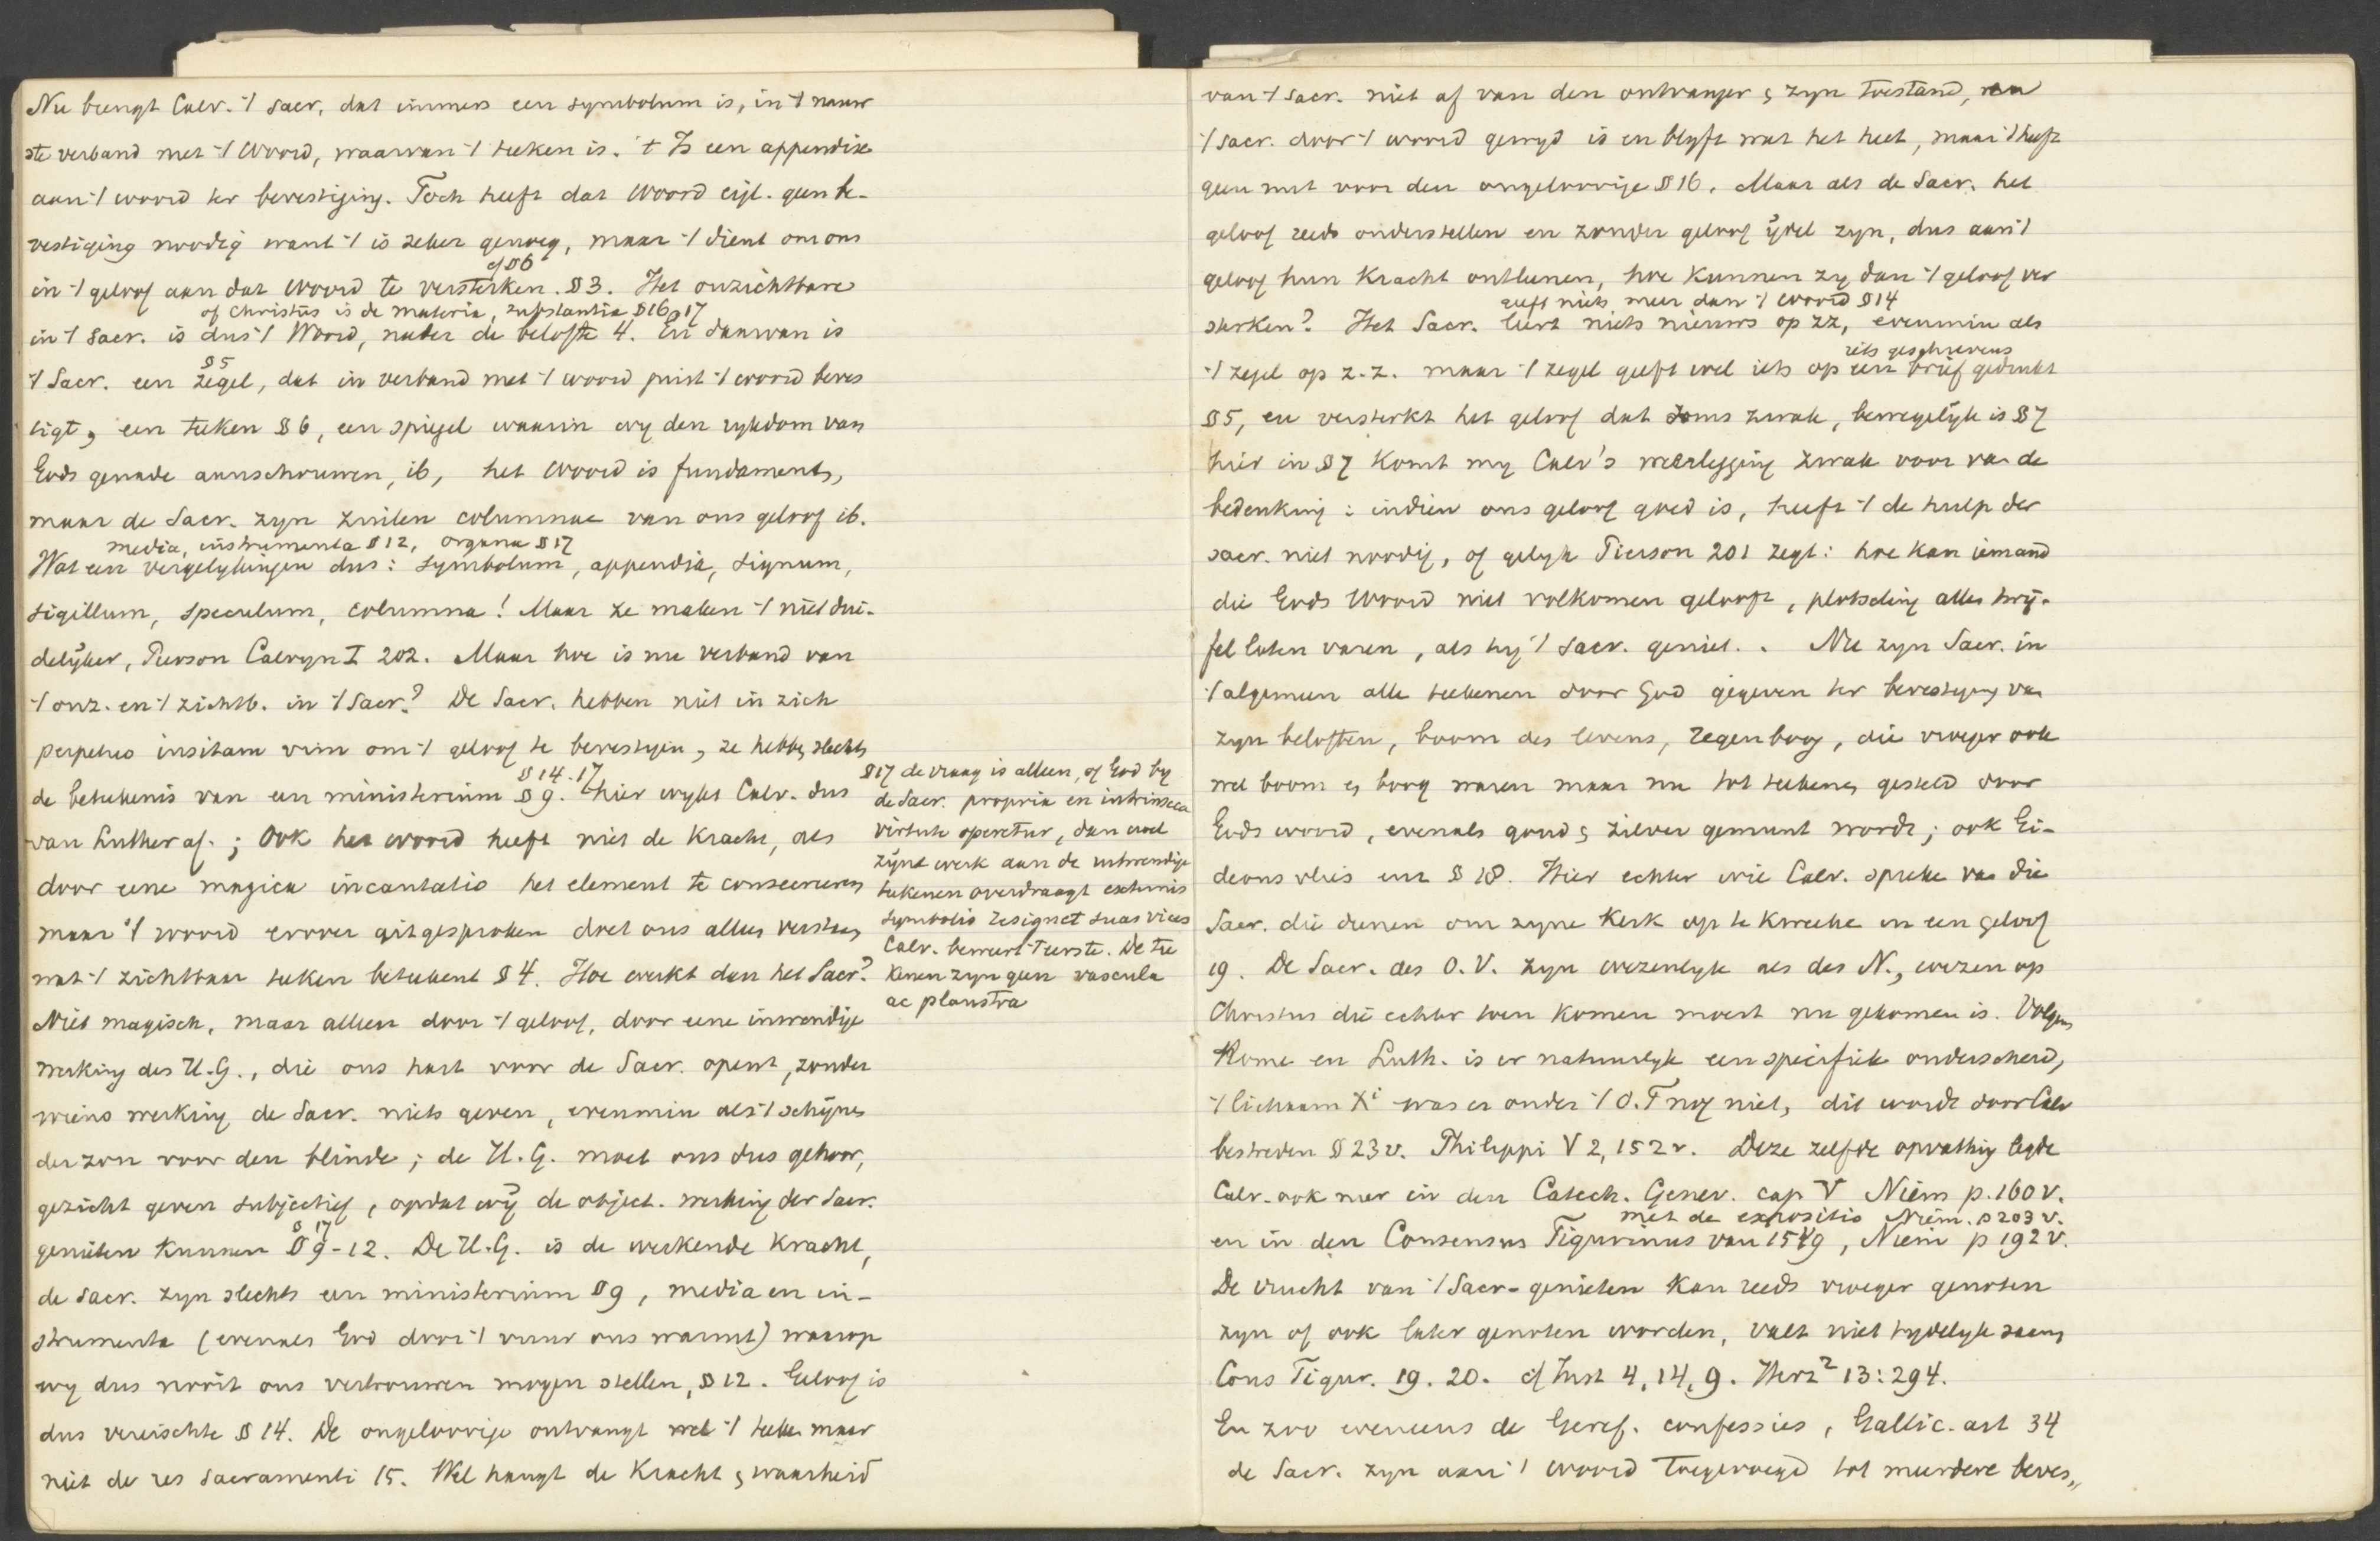 Nu brengt Calv. 't sacr. dat immers een symbolum is, in 't nauw
ste verband met 't Woord, waarvan 't teeken is. 't Is een appendix
aan 't woord ter bevestiging. Toch heeft dat Woord eigl. geen be-
vestiging noodig want 't is zeker genoeg, maar 't dient om ons
cf § 6
in 't geloof aan dat Woord te versterken. § 3. Het onzichtbare
of Christus is de materia, substantia § 16, 17
in 't sacr. is dus 't Woord, nader de belofte 4. En daarvan is
§ 5
't Sacr. een zegel, dat in verband met 't woord juist 't woord beves
tigt, een teeken § 6, een spiegel waarin wy den rykdom van
Gods genade aanschouwen, ib, het Woord is fundament,
maar de Sacr. zyn zuilen columnae van ons geloof ib.
media, instrumenta § 12, organa § 17
Wat een vergelykingen dus: symbolum, appendix, signum,
sigillum, speculum, columna! Maar ze maken 't niet dui-
delijker, Pierson Calvyn I 202. Maar hoe is nu verband van
't onz. en 't zichtb. in 't Sacr.? De Sacr. hebben niet in zich
perpetuo insitam vim om 't geloof te bevestigen, ze hebben slechts
§ 14. 17
de beteekenis van een ministerium § 9. Hier wykt Calv. dus
van Luther af.; Ook het woord heeft niet de kracht, als
door eene magica incantatio het element te consecreeren
maar 't woord erover uitgesproken doet ons alleen verstaan
wat 't zichtbaar teeken beteekent § 4. Hoe werkt dan het Sacr?
Niet magisch, maar alleen door 't geloof, door eene inwendige
werking des H.G., die ons hart voor de Sacr. opent, zonder
wiens werking de Sacr. niets geven, evenmin als 't schijnen
der zon voor den blinde; de H.G. moet ons dus gehoor,
gezicht geven subjectief, opdat wij de object. werking der Sacr.
§ 17
genieten kunnen § 9-12. De H.G. is de werkende kracht,
de sacr. zyn slechts een ministerium § 9, media en in-
strumenta (evenals God door 't vuur ons warmt) waarop
wy dus nooit ons vertrouwen mogen stellen, § 12. Geloof is
dus vereischte § 14. De ongeloovige ontvangt wel 't teeken maar
niet de res sacramenti 15. Wel hangt de kracht en waarheid
§ 17 de vraag is alleen, of God by
de Sacr. propria en intrinseca
virtute operetur, dan wel
zijne werk aan de uitwendige
teekenen overdraagt externis
symbolis resignet suas vices
Calv. beweert 't eerste. De tee
kenen zyn geen vascula
ac plaustra
van 't sacr. niet af van den ontvanger en zyn toestand,
't sacr. door 't woord gewyd is en blyft wat het heet, maar 't heeft
geen nut voor den ongeloovige § 16. Maar als de Sacr. het
geloof reeds onderstellen en zonder geloof ijdel zyn, dus aan 't
geloof hun kracht ontleenen, hoe kunnen zy dan 't geloof ver
geeft niets meer dan 't woord § 14
sterken? Het Sacr. leert niets nieuws op zz, evenmin als
iets geschrevens
't zegel op z.z. maar 't zegel geeft wel iets op een brief gedrukt
§ 5, en versterkt het geloof dat soms zwak, bewegelijk is § 7
hier in § 7 komt my Calv's weerlegging zwak voor van de
bedenking: indien ons geloof goed is, heeft 't de hulp der
sacr. niet noodig, of gelyk Pierson 201 zegt: hoe kan iemand
die Gods Woord niet volkomen gelooft, plotseling allen twij-
fel laten varen, als hy 't sacr. geniet. . Nu zyn Sacr. in
't algemeen alle teekenen door God gegeven ter bevestiging van
zyn beloften, boom des levens, regenboog, die vroeger ook
wel boom en boog waren maar nu tot teekenen gesteld door
Gods woord, evenals goud en zilver gemunt wordt; ook Gi-
deons vlies enz § 18. Hier echter wil Calv. spreken van die
Sacr. die dienen om zyne Kerk op te kweeken in een geloof
19. De Sacr. des O.V. zyn wezenlyk als des N., wezen op
Christus die echter toen komen moest nu gekomen is. Volgens
Rome en Luth. is er natuurlyk een specifiek onderscheid,
't lichaam Xi was er onder 't O.T nog niet, dit wordt door Calv
bestreden § 23v. Philippi V 2, 152v. Deze zelfde opvatting legde
Calv. ook neer in den Catech. Genev. cap V Niem p. 160 v.
met de expositio Niem. p 203 v.
en in den Consensus Tigurinus van 1549, Niem p 192 v.
De vrucht van 't Sacr-genieten kan reeds vroeger genoten
zyn of ook later genoten worden, valt niet tydelyk saam
Cons Tigur. 19. 20. cf Inst 4, 14, 9. Herz² 13: 294.
En zoo eveneens de Geref. confessies, Gallic. art 34
de Sacr. zyn aan 't woord toegevoegd tot meerdere beves„